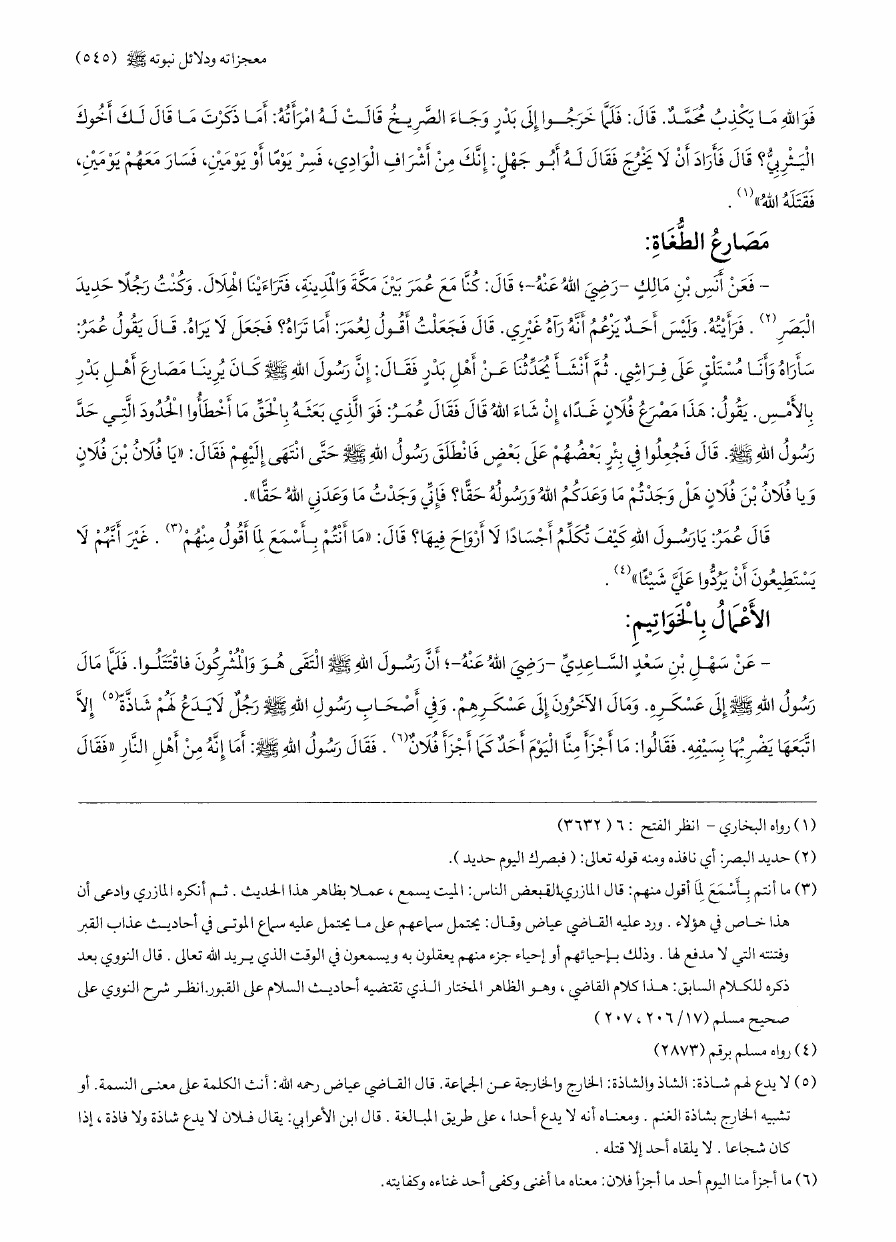 معجزاته ودلائل نبوته ﷺ (٥٤٥)
فَوَاللهِ مَا يَكْذِبُ مُحَمَّدٌ. قَالَ: فَلَمَّا خَرَجُوا إِلَى بَدْرٍ وَجَاءَ الصَّرِيخُ قَالَتْ لَهُ امْرَأَتُهُ: أَمَا ذَكَرْتَ مَا قَالَ لَكَ أَخُوكَ
الْيَثْرِبِيُّ؟ قَالَ فَأَرَادَ أَنْ لَا يَخْرُجَ فَقَالَ لَهُ أَبُو جَهْلٍ: إِنَّكَ مِنْ أَشْرَافِ الْوَادِي، فَسِرْ يَوْمًا أَوْ يَوْمَيْنِ، فَسَارَ مَعَهُمْ يَوْمَيْنِ،
فَقَتَلَهُ اللهُ»(١) .
مَصَارِعُ الطُّغَاةِ:
- فَعَنْ أَنَسِ بْنِ مَالِكٍ -رَضِيَ اللهُ عَنْهُ-؛ قَالَ: كُنَّا مَعَ عُمَرَ بَيْنَ مَكَّةَ وَالْمَدِينَةِ، فَتَرَاءَيْنَا الْهِلَالَ. وَكُنْتُ رَجُلًا حَدِيدَ
الْبَصَرِ(٢) . فَرَأَيْتُهُ. وَلَيْسَ أَحَدٌ يَزْعُمُ أَنَّهُ رَآهُ غَيْرِي. قَالَ فَجَعَلْتُ أَقُولُ لِعُمَرَ: أَمَا تَرَاهُ؟ فَجَعَلَ لَا يَرَاهُ. قَالَ يَقُولُ عُمَرُ:
سَأَرَاهُ وَأَنَا مُسْتَلْقٍ عَلَى فِرَاشِي. ثُمَّ أَنْشَأَ يُحَدِّثُنَا عَنْ أَهْلِ بَدْرٍ فَقَالَ: إِنَّ رَسُولَ اللهِ ﷺ كَانَ يُرِينَا مَصَارِعَ أَهْلِ بَدْرِ
بِالأَمْسِ. يَقُولُ: هَذَا مَصْرَعُ فُلَانٍ غَدًا، إِنْ شَاءَ اللهُ قَالَ فَقَالَ عُمَرُ: فَوَ الَّذِي بَعَثَهُ بِالْحَقِّ مَا أَخْطَأُوا الْحُدُودَ الَّتِي حَدَّ
رَسُولُ اللهِ ﷺ. قَالَ فَجُعِلُوا فِي بِئْرٍ بَعْضُهُمْ عَلَى بَعْضٍ فَانْطَلَقَ رَسُولُ اللهِ ﷺ حَتَّى انْتَهَى إِلَيْهِمْ فَقَالَ: «يَا فُلَانُ بْنَ فُلَانٍ
وَيا فُلَانُ بْنَ فُلَانٍ هَلْ وَجَدْتُمْ مَا وَعَدَكُمُ اللهُ وَرَسُولُهُ حَقًّا؟ فَإِنِّي وَجَدْتُ مَا وَعَدَنِي اللهُ حَقًّا».
قَالَ عُمَرُ: يَارَسُولَ اللهِ كَيْفَ تُكَلِّمُ أَجْسَادًا لَا أَرْوَاحَ فِيهَا؟ قَالَ: «مَا أَنْتُمْ بِأَسْمَعَ لِمَا أَقُولُ مِنْهُمْ(٣) . غَيْرَ أَنَّهُمْ لَا
يَسْتَطِيعُونَ أَنْ يَرُدُّوا عَلَيَّ شَيْئًا»(٤) .
الأَعْمَالُ بِالْخَوَاتِيمِ:
- عَنْ سَهْلِ بْنِ سَعْدٍ السَّاعِدِيِّ -رَضِيَ اللهُ عَنْهُ-؛ أَنَّ رَسُولَ اللهِ ﷺ الْتَقَى هُوَ وَالْمُشْرِكُونَ فاقْتَتَلُوا. فَلَمَّا مَالَ
رَسُولُ اللهِ ﷺ إِلَى عَسْكَرِهِ. وَمَالَ الآخَرُونَ إِلَى عَسْكَرِهِمْ. وَفِي أَصْحَابِ رَسُولِ اللهِ ﷺ رَجُلٌ لَايَدَعُ لَهُمْ شَاذَّةً(٥) إِلاَّ
اتَّبَعَهَا يَضْرِبُهَا بِسَيْفِهِ. فَقَالُوا: مَا أَجْزَأَ مِنَّا الْيَوْمَ أَحَدٌ كَمَا أَجْزَأَ فُلَانٌ(٦) . فَقَالَ رَسُولُ اللهِ ﷺ: أَمَا إِنَّهُ مِنْ أَهْلِ النَّارِ «فَقَالَ
(١) رواه البخاري - انظر الفتح : ٦ ( ٣٦٣٢)
(٢) حديد البصر: أي نافذه ومنه قوله تعالى: ( فبصرك اليوم حديد ).
(٣) ما أنتم بِأَسْمَعَ لِمَا أقول منهم: قال المازري: قال بعض الناس: الميت يسمع ، عملا بظاهر هذا الحديث . ثم أنكره المازري وادعى أن
هذا خاص في هؤلاء . ورد عليه القاضي عياض وقال: يحتمل سماعهم على ما يحتمل عليه سماع الموتى في أحاديث عذاب القبر
وفتنته التي لا مدفع لها . وذلك بإحيائهم أو إحياء جزء منهم يعقلون به ويسمعون في الوقت الذي يريد الله تعالى . قال النووي بعد
ذكره للكلام السابق: هذا كلام القاضي ، وهو الظاهر المختار الذي تقتضيه أحاديث السلام على القبور.انظر شرح النووي على
صحيح مسلم (١٧/ ٢٠٦ ، ٢٠٧ )
(٤) رواه مسلم برقم (٢٨٧٣)
(٥) لا يدع لهم شاذة: الشاذ والشاذة: الخارج والخارجة عن الجماعة. قال القاضي عياض رحمه الله: أنث الكلمة على معنى النسمة. أو
تشبيه الخارج بشاذة الغنم . ومعناه أنه لا يدع أحدا ، على طريق المبالغة . قال ابن الأعرابي: يقال فلان لا يدع شاذة ولا فاذة ، إذا
كان شجاعا . لا يلقاه أحد إلا قتله .
(٦) ما أجزأ منا اليوم أحد ما أجزأ فلان: معناه ما أغنى وكفى أحد غناءه وكفايته.